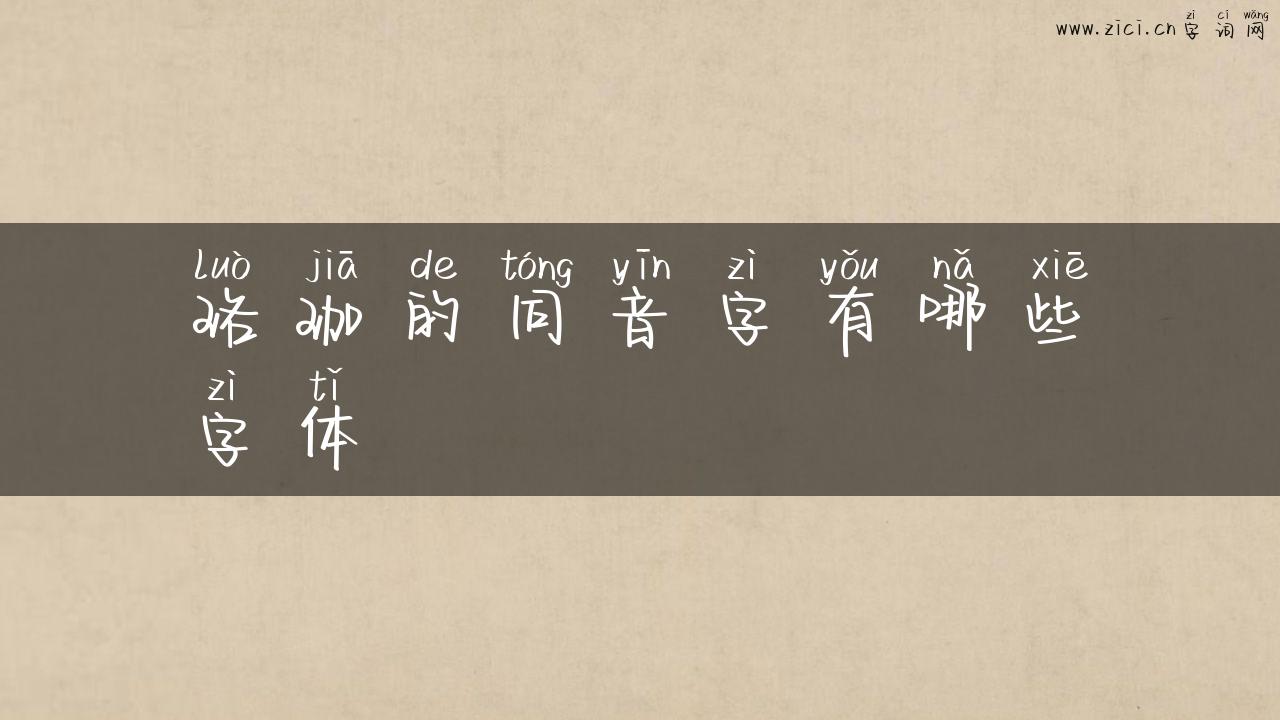 zì cí wǎng
www.zici.cn 字词网
luò jiā de tóng yīn zì yǒu nǎ xiē
珞珈的同音字有哪些
zì tǐ
字体